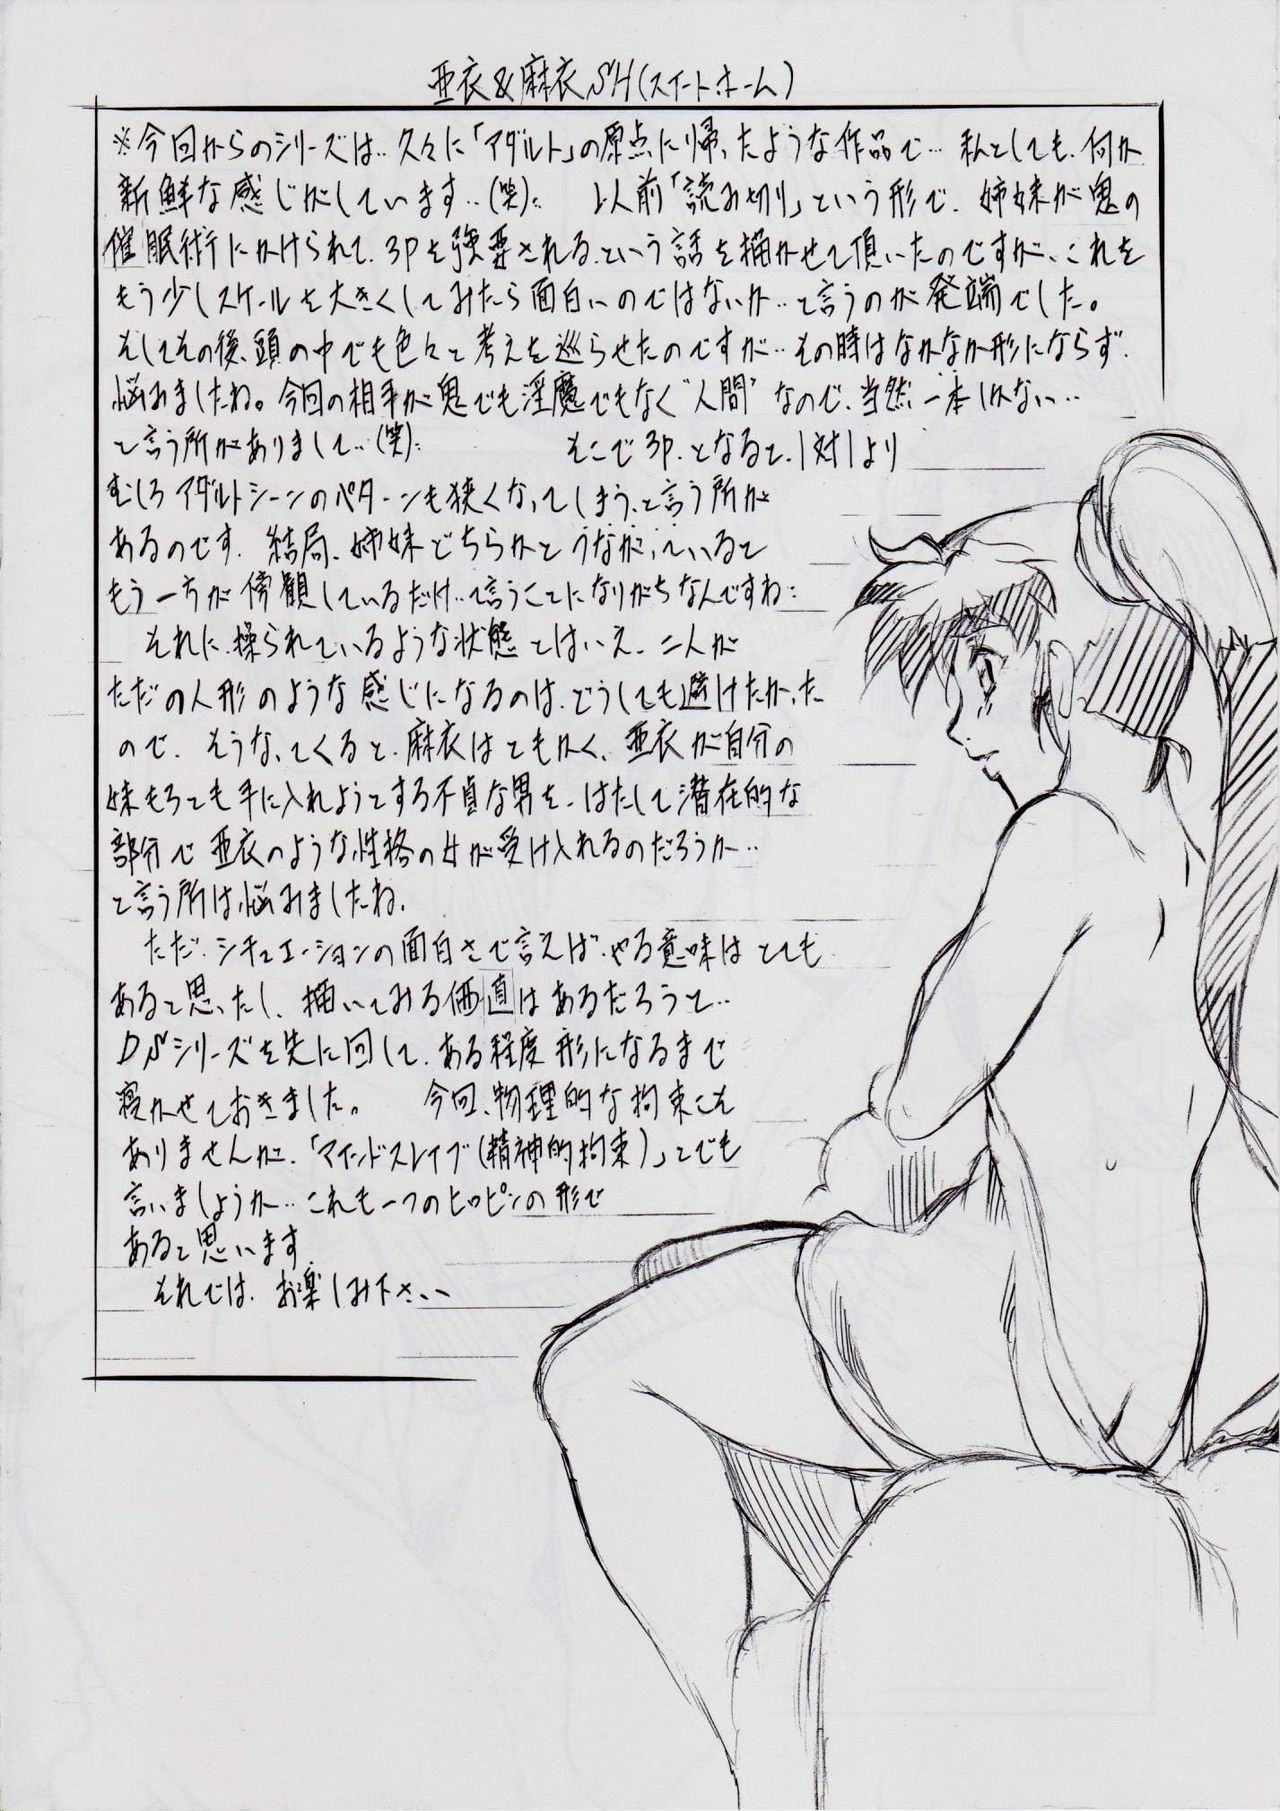 亜衣&麻衣SH(スイート・ホーム)
※今回からのシリーズは‥久々に「アダルト」の原点に帰ったような作品で‥私としても、何か
新鮮な感じがしています‥(笑)‥ 以前「読み切り」という形で、姉妹が鬼の
催眠術にかけられて、3Pを強要される、という話を描かせて頂いたのですが、これを
もう少しスケールを大きくしてみたら面白いのではないか‥と言うのが発端でした。
そしてその後、頭の中でも色々と考えを巡らせたのですが‥その時はなかなか形にならず、
悩みましたね。今回の相手が鬼でも淫魔でもなく"人間"なので、当然一本しかない‥
と言う所がありまして‥(笑)‥ そこで3P、となると、1対1より
むしろアダルトシーンのパターンも狭くなってしまう、と言う所が
あるのです。結局、姉妹どちらかとつながっていると
もう一方が傍観しているだけ‥って言うことになりがちなんですね‥
それに、操られているような状態とはいえ、二人が
ただの人形のような感じになるのは、どうしても避けたかった
ので、そうなってくると、麻衣はともかく、亜衣が自分の
妹もろとも手に入れようとする不貞な男を、はたして潜在的な
部分で亜衣のような性格の女が受け入れるのだろうか‥
と言う所は悩みましたね。
ただ、シチュエーションの面白さで言えば、やる意味はとても
あると思ったし、描いてみる価値はあるだろうと‥
DSシリーズを先に回して、ある程度形になるまで
寝かせておきました。 今回、物理的な拘束こそ
ありませんが、「マインドスレイブ(精神的拘束)」とでも
言いましょうか‥これも一つのヒロピンの形で
あると思います。
それでは、お楽しみ下さい